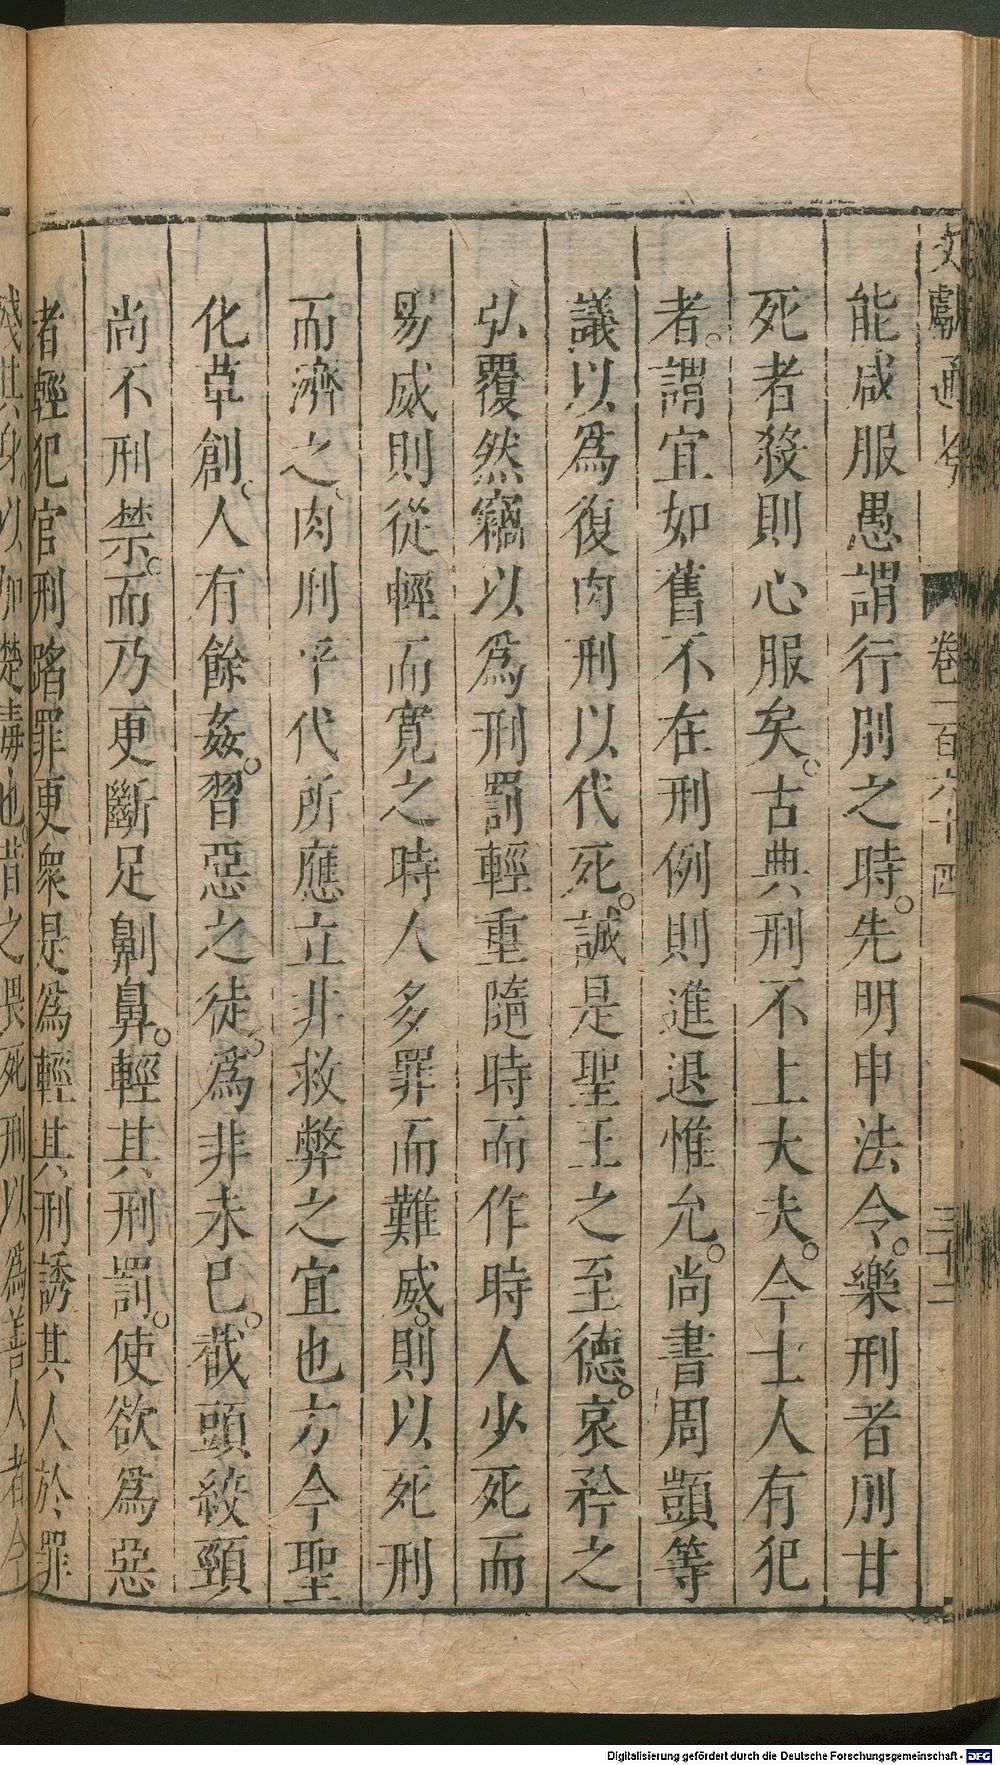 文獻通考 卷一百六十四 三十二
能咸服愚謂行刖之時。先明申法令。樂刑者刖甘
死者殺則心服矣。古典刑不上大夫。今士人有犯
者。謂宜如舊不在刑例則進退惟允。尚書周顗等
議以爲復肉刑以代死。誠是聖王之至德。哀矜之
弘覆然竊以爲刑罰輕重隨時而作時人少死而
易威則從輕而寛之時人多罪而難威。則以死刑
而濟之、肉刑平代所應立非救弊之宜也方今聖
化草創、人有餘姦。習惡之徒。爲非未已。截頭絞頸
尚不刑禁。而乃更斷足劓鼻。輕其刑罰。使欲爲惡
者輕犯官刑蹈罪更衆是爲輕其刑誘其人於罪
殘其身。以加楚毒也。昔之畏死刑以爲善人者今
Digitalisierung gefördert durch die Deutsche Forschungsgemeinschaft - DFG